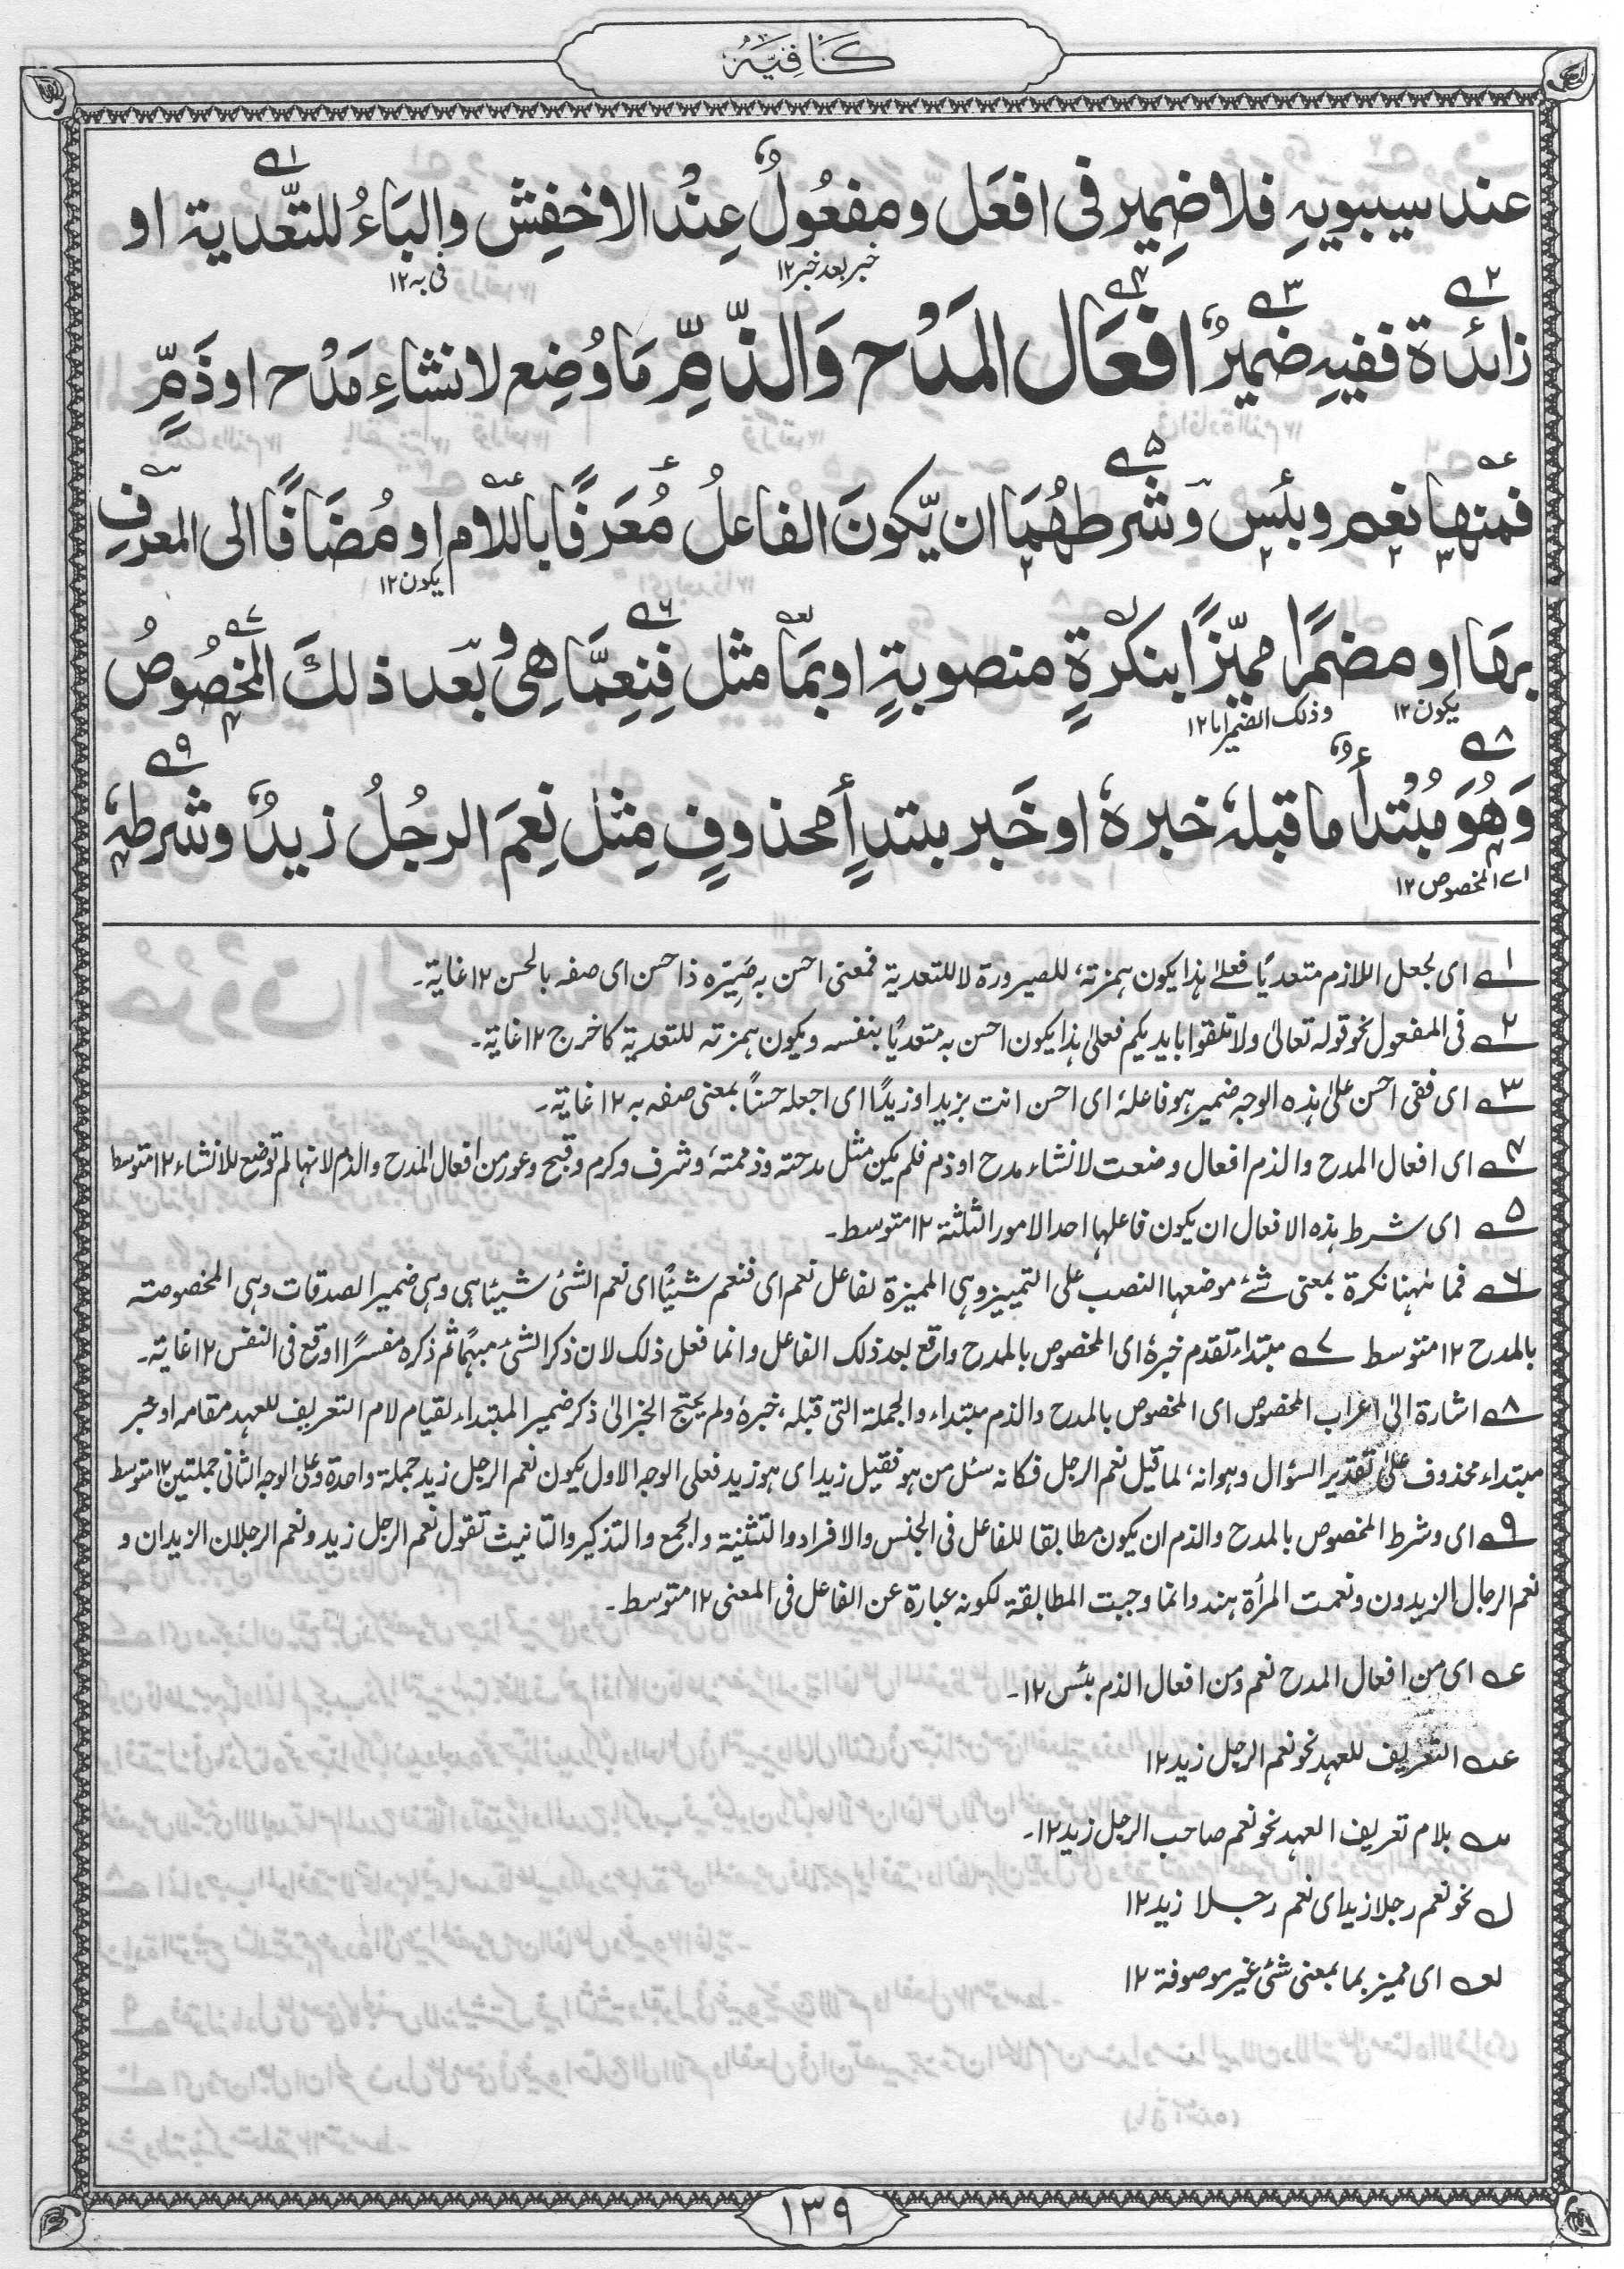 كَافِيَه
عند سيبويهِ فلا ضمير فى افعَل ومفعُولٌ عِنْد الاخفش والبَاءُ للتَّعدية او
خبر بعد خبر ١٢
فى به ١٢
زائدة ففيهِ ضميرٌ افعَال المَدْح وَالذّمِّ مَا وُضِع لانشاءِ مَدْح او ذَمٍّ
فمنها نعم وبئس وشرطهُمَا ان يّكونَ الفاعلُ مُعَرفًا باللّام او مُضَافًا الى المعرّفِ
يكون ١٢
بهَا او مضمرًا مميّزًا بنكرةٍ منصوبةٍ او بمَا مثل فَنِعِمَّا هِىَ وبَعد ذلكَ المخصُوصُ
يكون ١٢
وذلك الضمير اما ١٢
وَهُوَ مُبْتدأٌ ما قبلهٗ خبرهٗ او خَبر مبتدأٍ محذوفٍ مِثل نِعِمَ الرجُلُ زيدٌ وشرطهٗ
اے المخصوص ١٢
١ اى لجعل اللازم متعديًا فعلےٰ هذا يكون همزتهٗ للصيرورة لا للتعدية فمعنى احسن به صَيِّرْه ذا حسن اى صفه بالحسن ١٢ غاية۔
٢ فى المفعول نحو قوله تعالىٰ ولا تلقوا بايديكم فعلى هذا يكون احسن به متعديًا بنفسه ويكون همزته للتعدية كاخرج ١٢ غاية۔
٣ اى ففى احسن علىٰ هذه الوجه ضمير هو فاعلهٗ اى احسن انت بزيد او زيدًا اى اجعله حسنًا بمعنى صفه به ١٢ غاية۔
٤ اى افعال المدح والذم افعال وضعت لانشاء مدح او ذم فلم يكن مثل مدحته وذممتهٗ وشرف وكرم وقبح وعور من افعال المدح والذم لانها لم توضع للانشاء ١٢ متوسط
٥ اى شرط هذه الافعال ان يكون فاعلها احد الامور الثلثة ١٢ متوسط۔
٦ فما ههنا نكرة بمعنى شئ موضعها النصب على التمييز وهى المميزة لفاعل نعم اى فنعم شيئًا اى نعم الشئ شيئا هى وهى ضمير الصدقات وهى المخصوصة
بالمدح ١٢ متوسط ٧ مبتداء تقدم خبرهٗ اى المخصوص بالمدح واقع بعد ذلك الفاعل وانما فعل ذلك لان ذكر الشئ مبهمًا ثم ذكره مفسرًا اوقع فى النفس ١٢ غاية۔
٨ اشارة الىٰ اعراب المخصوص اى المخصوص بالمدح والذم مبتداء والجملة التى قبلهٗ خبرهٗ ولم يحتج الخبر الىٰ ذكر ضمير المبتداء لقيام لام التعريف للعهد مقامه او خبر
مبتداء محذوف علىٰ تقدير السؤال وهو انهٗ لما قيل نعم الرجل فكانه سئل من هو فقيل زيد اى هو زيد فعلى الوجه الاول يكون نعم الرجل زيد جملة واحدة وعلى الوجه الثانى جملتين ١٢ متوسط
٩ اى وشرط المخصوص بالمدح والذم ان يكون مطابقا للفاعل فى الجنس والافراد والتثنية والجمع والتذكير والتانيث تقول نعم الرجل زيد ونعم الرجلان الزيدان و
نعم الرجال الزيدون ونعمت المرأة هند وانما وجبت المطابقة لكونه عبارة عن الفاعل فى المعنى ١٢ متوسط۔
عـه اى من افعال المدح نعم ومن افعال الذم بئس ١٢۔
التعريف للعهد نحو نعم الرجل زيد ١٢
بلام تعريف العهد نحو نعم صاحب الرجل زيد ١٢۔
نحو نعم رجلا زيد اى نعم رجلا زيد ١٢
اى مميز بما بمعنى شئ غير موصوفة ١٢
١٣٩